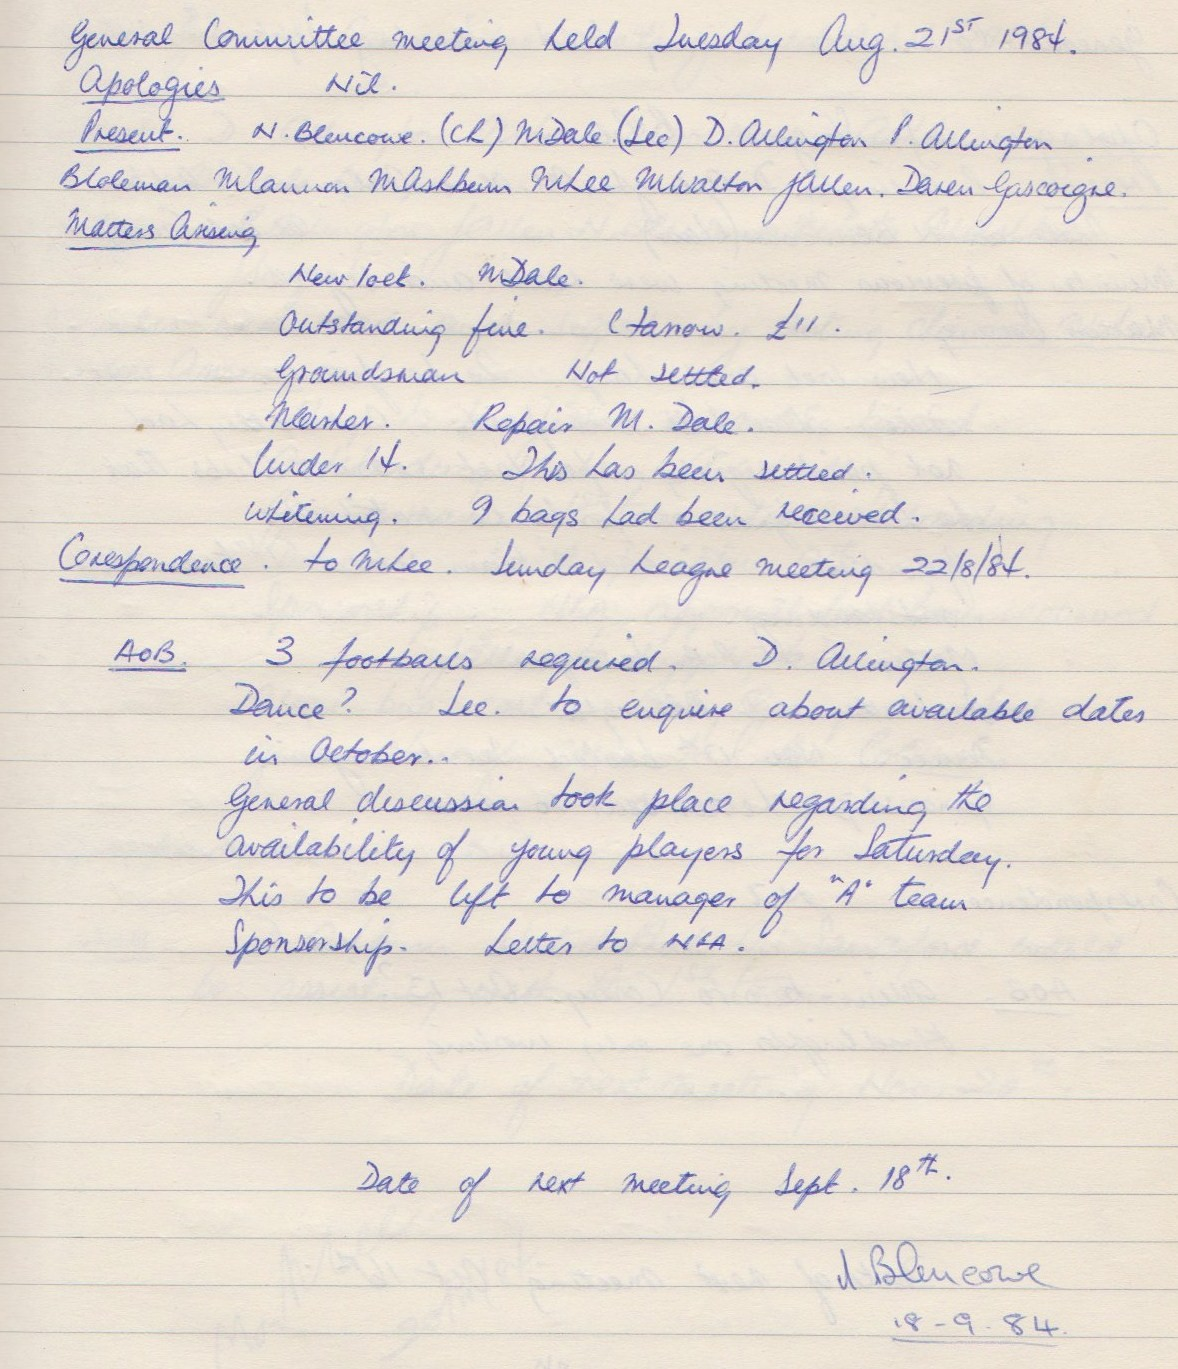 General Committee meeting held Tuesday Aug. 21ST 1984.
Apologies Nil.
Present. N. Blencowe. (Ch) M Dale. (Sec) D. Allington P. Allington
B Coleman M Lannon M Ashburn M Lee M Walton J Allen. Daren Gascoigne.
Matters Arising
New lock. M Dale.
Outstanding fine. C £11.
Groundsman Not settled.
Marker. Repair M. Dale.
Under 14. This has been settled.
Whitening. 9 bags had been received.
Corespondence. to M Lee. Sunday League meeting 22/8/84.
AOB. 3 footballs required. D. Allington.
Dance? Sec. to enquire about available dates
in October..
General discussion took place regarding the
availability of young players for Saturday.
This to be left to manager of "A" team
Sponsorship. Letter to
Date of next meeting Sept. 18th.
N Blencowe
18-9-84.